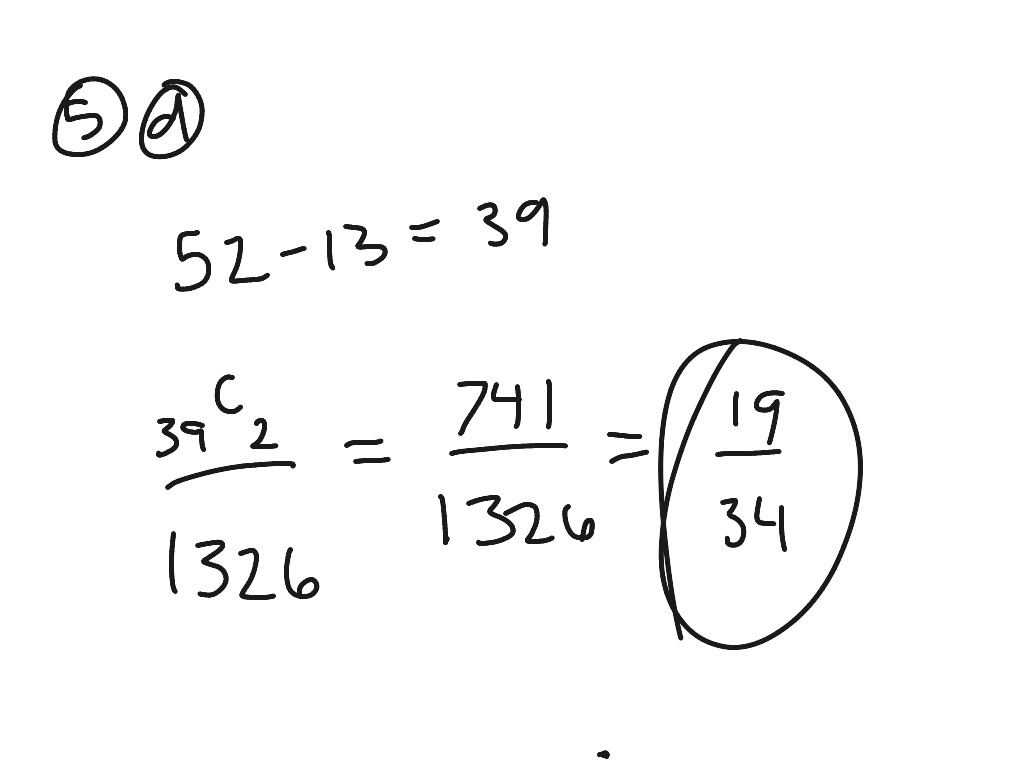 5 d
52 - 13 = 39
39C2 / 1326 = 741 / 1326 = 19 / 34